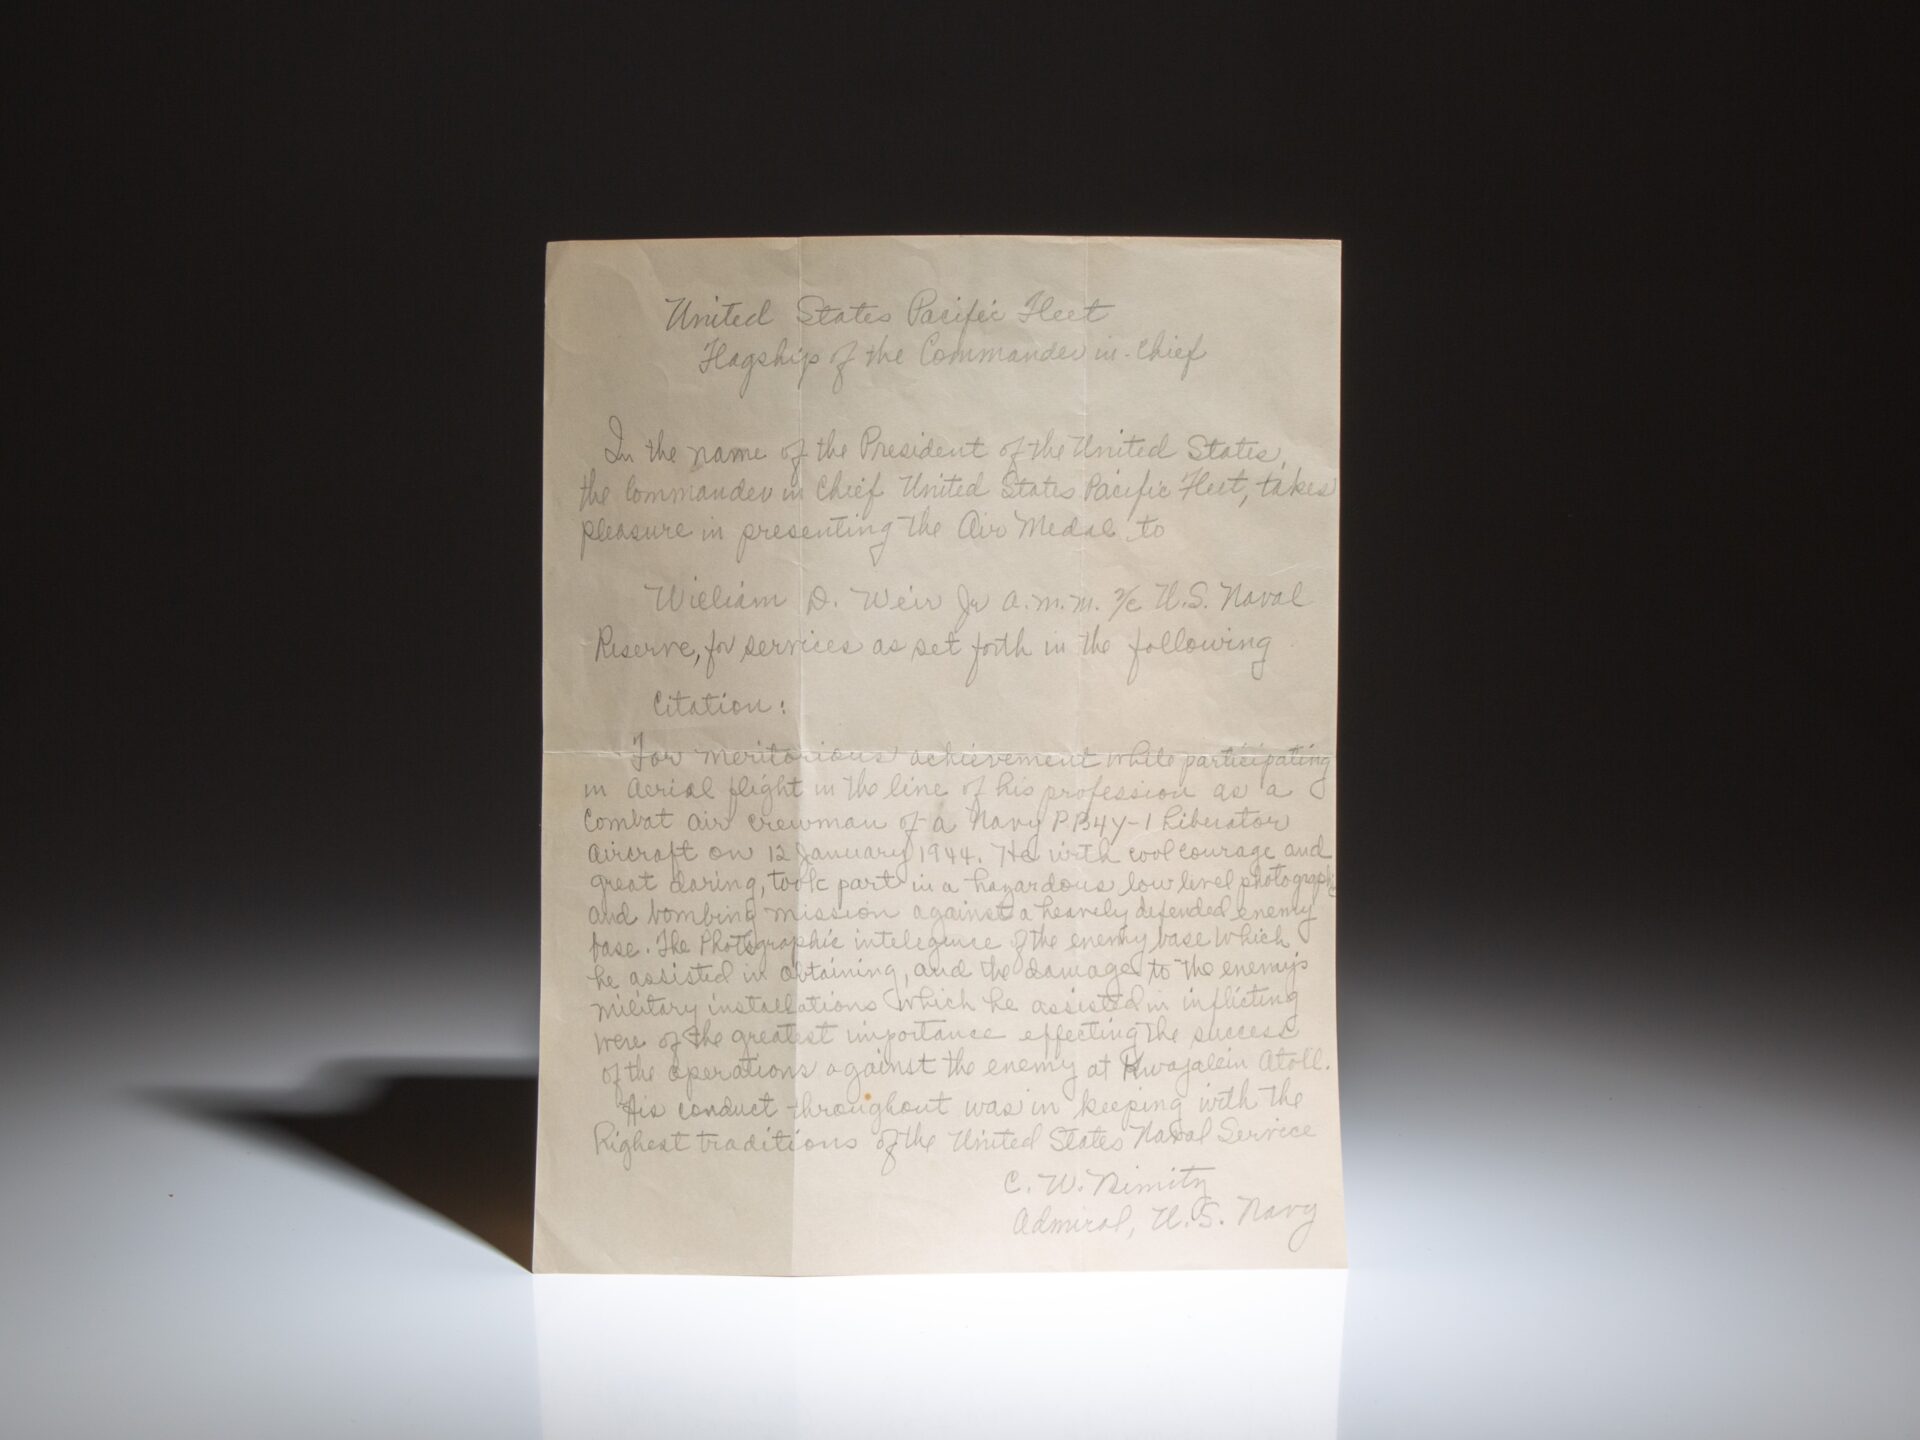 United States Pacific Fleet
Flagship of the Commander in-Chief
In the name of the President of the United States,
the Commander in Chief United States Pacific Fleet, takes
pleasure in presenting the Air Medal to
William D. Weir Jr A.M.M. 2/c U.S. Naval
Reserve, for services as set forth in the following
Citation:
For meritorious achievement while participating
in Aerial flight in the line of his profession as a
Combat air crewman of a Navy PB4Y-1 Liberator
aircraft on 12 January 1944. He with cool courage and
great daring, took part in a hazardous low level photographic
and bombing mission against a heavely defended enemy
base. The Photographic intelegence of the enemy base which
he assisted in obtaining, and the damage to the enemy's
military installations which he assisted in inflicting
were of the greatest importance effecting the success
of the operations against the enemy at Kwajalein Atoll.
His conduct throughout was in keeping with the
highest traditions of the United States Naval Service
C. W. Nimitz
Admiral, U.S. Navy